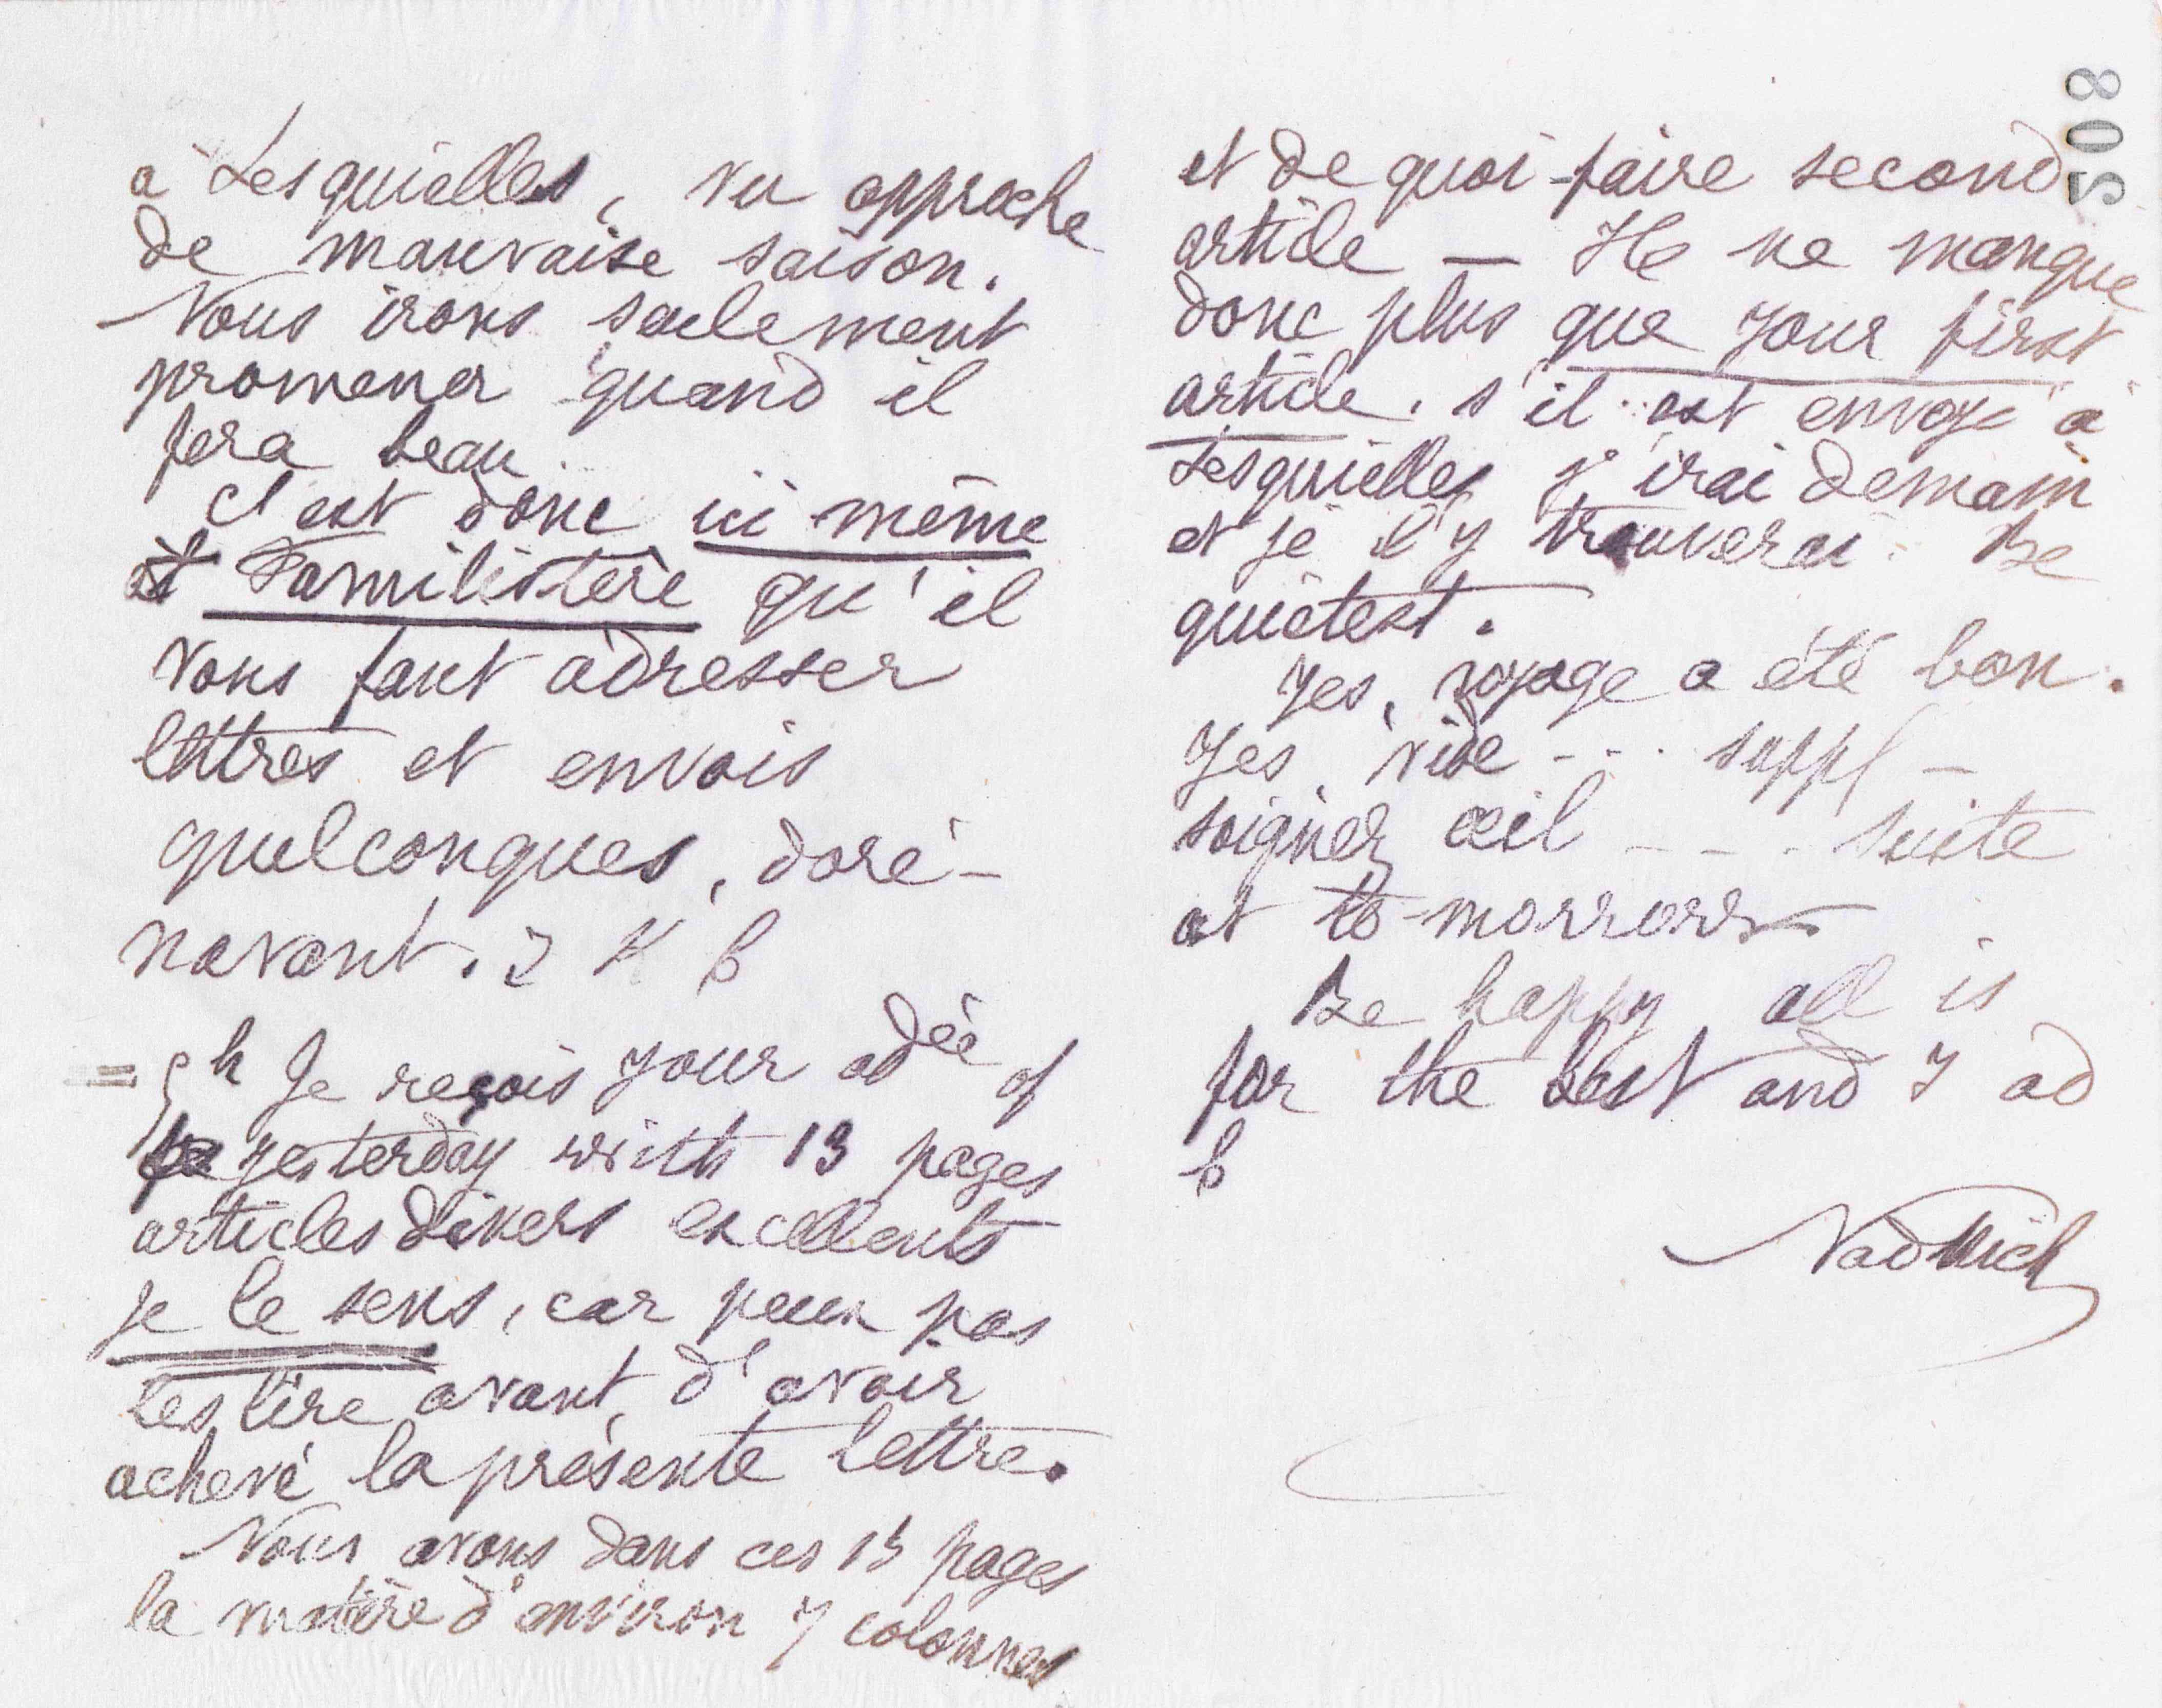 à Lesquielles, vu approche
de mauvaise saison.
Nous irons seulement
promener quand il
fera beau.
C'est donc ici même
at Familistère qu'il
vous faut adresser
lettres et envois
quelconques, doré-
navant. I K b
= 5 h Je reçois your adée of
yesterday with 13 pages
articles divers excellents
je le sens, car peux pas
les lire avant d'avoir
achevé la présente lettre.
Nous avons dans ces 13 pages
la matière d'environ 7 colonnes
508
et de quoi faire second
article — He ne manque
donc plus que your first
article. s'il est envoyé à
Lesquielles j'irai demain
et je l'y trouverai. Be
quietest.
Yes, voyage a été bon.
Yes vide - - . suppl —
soigner œil - - - . suite
at to-morrow.
Be happy all is
for the best and I ad
b
Nadwich